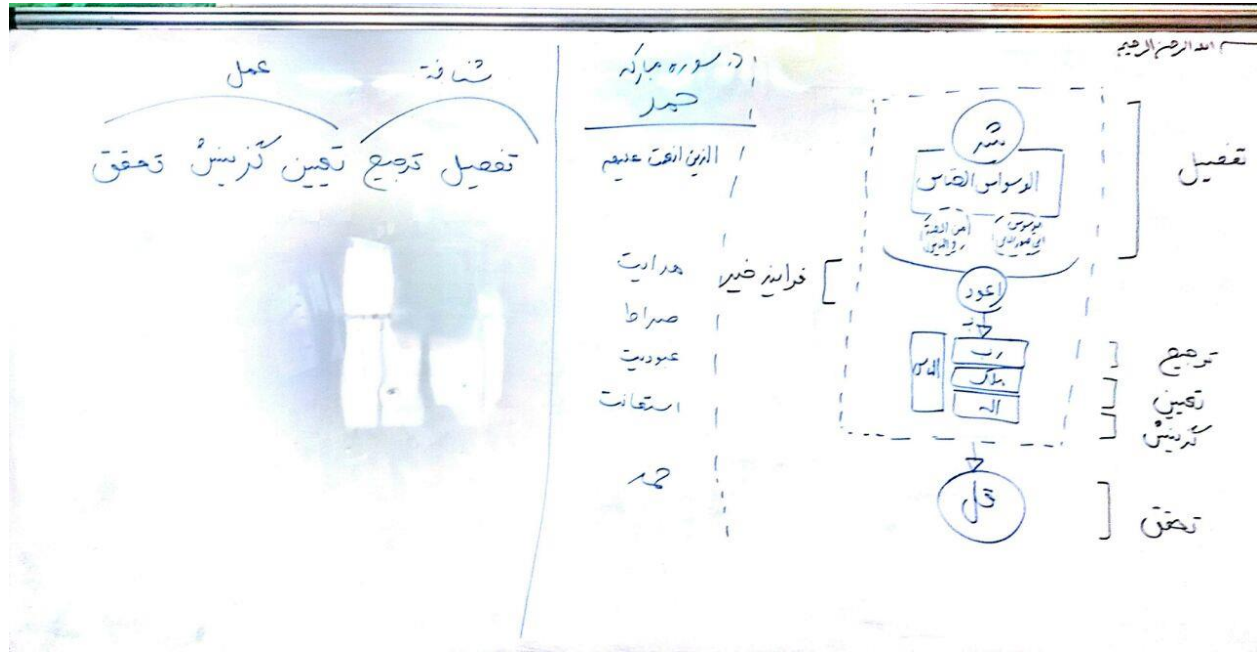 بسم الله الرحمن الرحیم
تفصیل
شر
الوسواس الخناس
یوسوس فی صدور الناس
من الجنة و الناس
اعوذ
ب
رب
ملک
اله
الناس
ترجیح
تعیین
گزینش
قل
تحقق
فرایند خیر
در سوره مبارکه
حمد
الذین انعمت علیهم
هدایت
صراط
عبودیت
استعانت
حمد
شناخت
عمل
تفصیل ترجیح تعیین گزینش تحقق